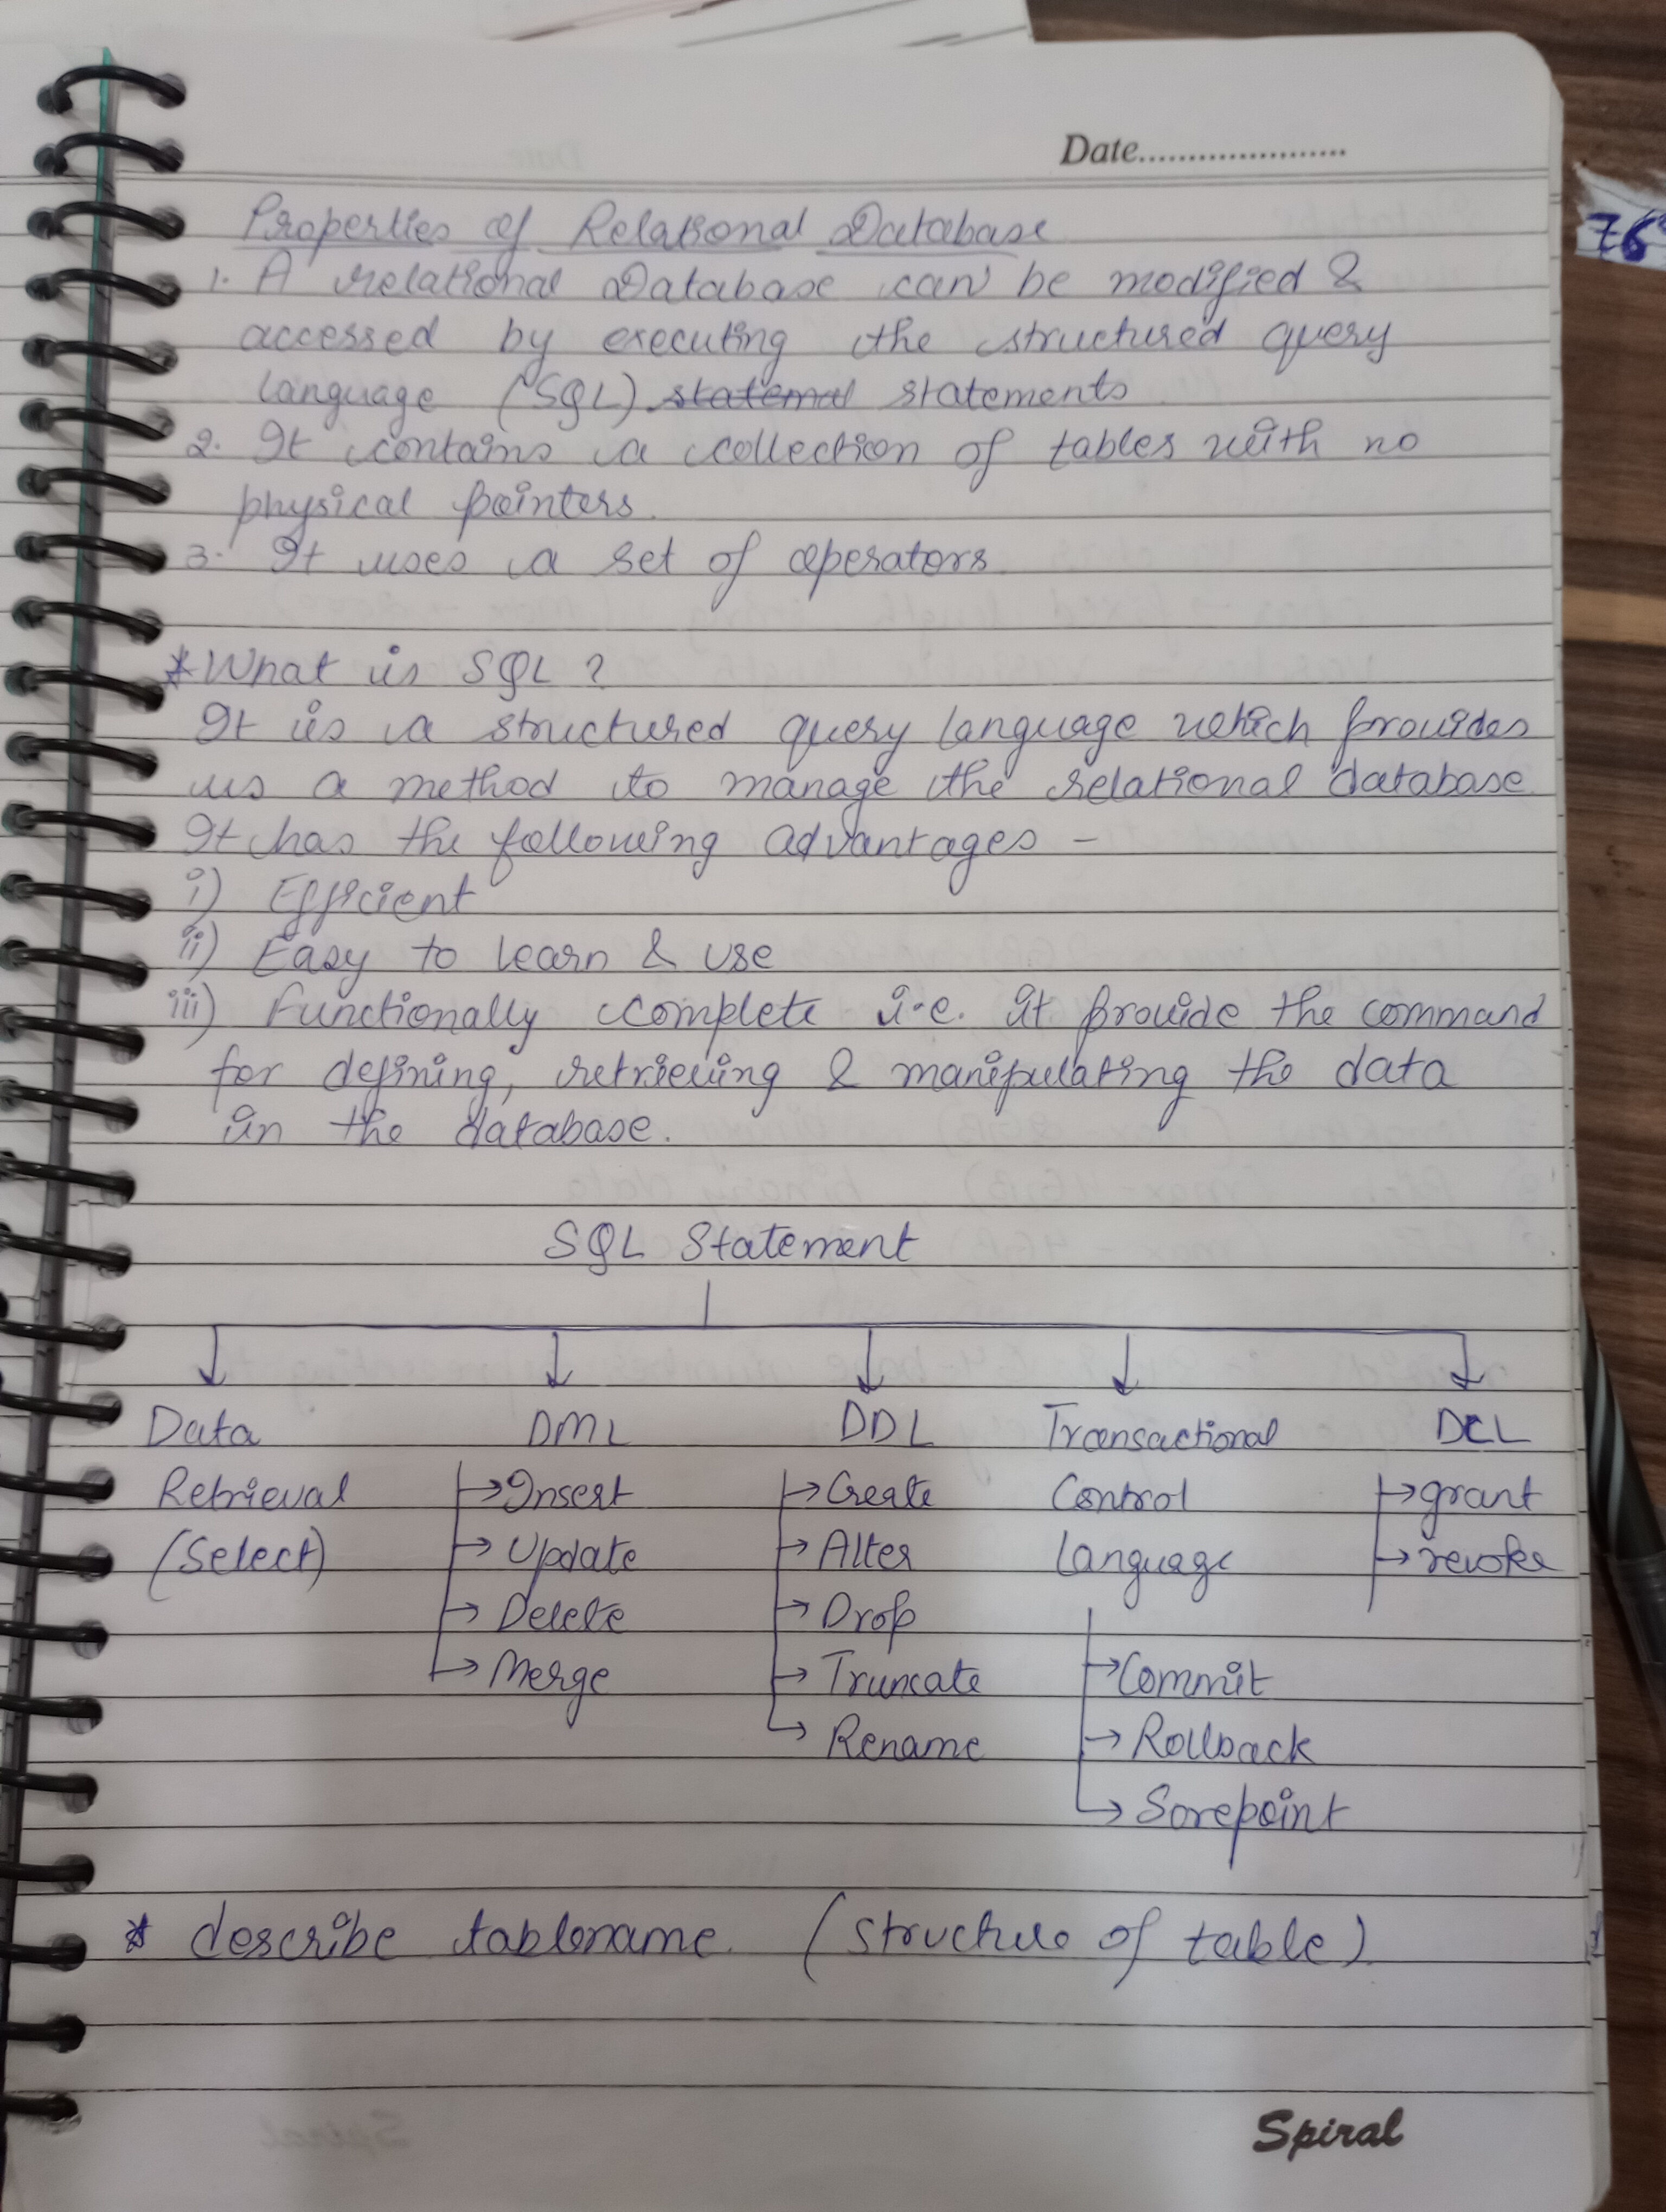 Date.....................
76
Properties of Relational Database
1. A relational Database can be modified &
accessed by executing the structured query
language (SQL) statemal statements
2. It contains a collection of tables with no
physical pointers.
3. It uses a set of operators
* What is SQL ?
It is a structured query language which provides
us a method to manage the relational database
It has the following advantages -
i) Efficient
ii) Easy to learn & use
iii) Functionally complete i.e. it provide the command
for defining, retrieving & manipulating the data
in the database.
SQL Statement
Data DML DDL Transactional DCL
Retrieval → Insert → Create Control → grant
(Select) → Update → Alter Language → revoke
→ Delete → Drop
→ Merge → Truncate → Commit
→ Rename → Rollback
→ Savepoint
* describe tablename (structure of table)
Spiral